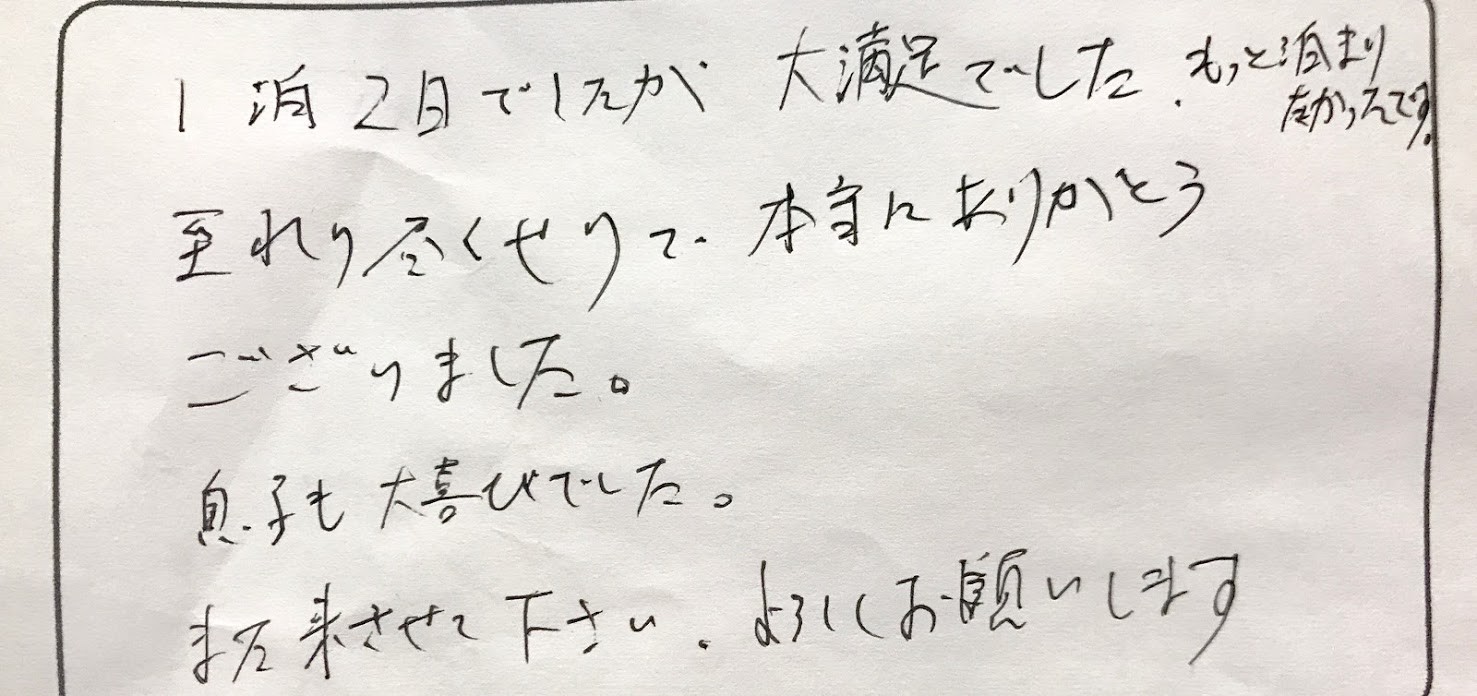 1泊2日でしたが 大満足でした. もっと泊まり
たかったです.
至れり尽くせりで、本当にありがとう
ございました。
息子も大喜びでした。
また来させて下さい. よろしくお願いします